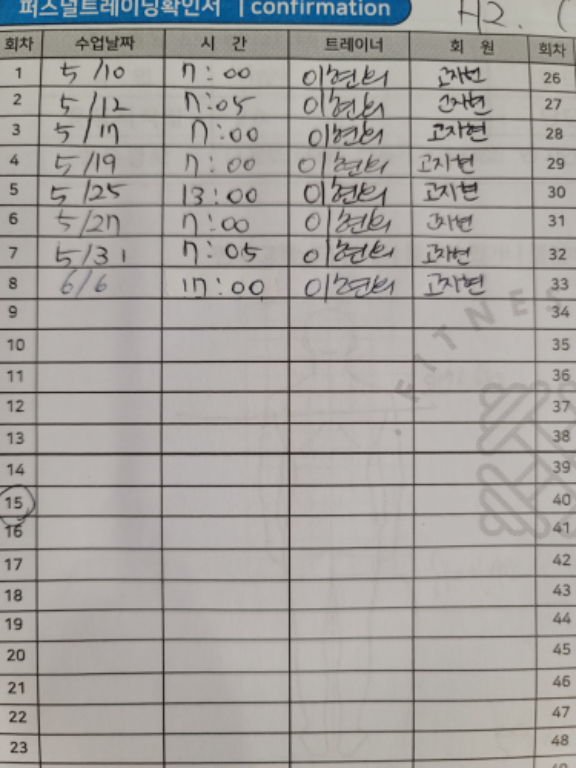 퍼스널트레이닝확인서 | confirmation H2. (
회차 수업날짜 시 간 트레이너 회 원 회차
1 5/10 7:00 이현희 고자현 26
2 5/12 7:05 이현희 고자현 27
3 5/17 7:00 이현희 고자현 28
4 5/19 7:00 이현희 고자현 29
5 5/25 13:00 이현희 고자현 30
6 5/27 7:00 이현희 고자현 31
7 5/31 7:05 이현희 고자현 32
8 6/6 17:00 이현희 고자현 33
9 34
10 35
11 36
12 37
13 38
14 39
15 40
16 41
17 42
18 43
19 44
20 45
21 46
22 47
23 48
FITNES